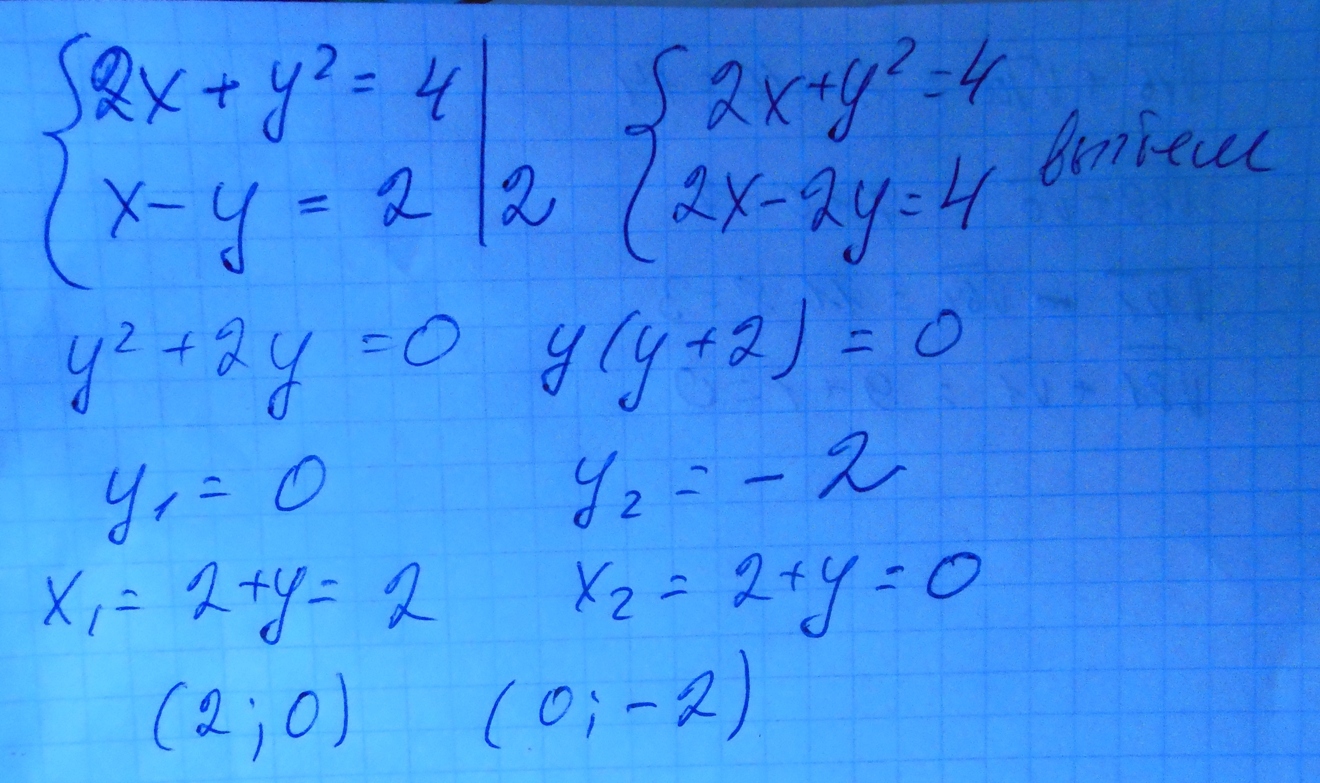 {2x + y² = 4 | {2x + y² = 4
{x − y = 2 | 2 {2x − 2y = 4 вычтем
y² + 2y = 0 y(y + 2) = 0
y₁ = 0 y₂ = − 2
x₁ = 2 + y = 2 x₂ = 2 + y = 0
(2; 0) (0; −2)